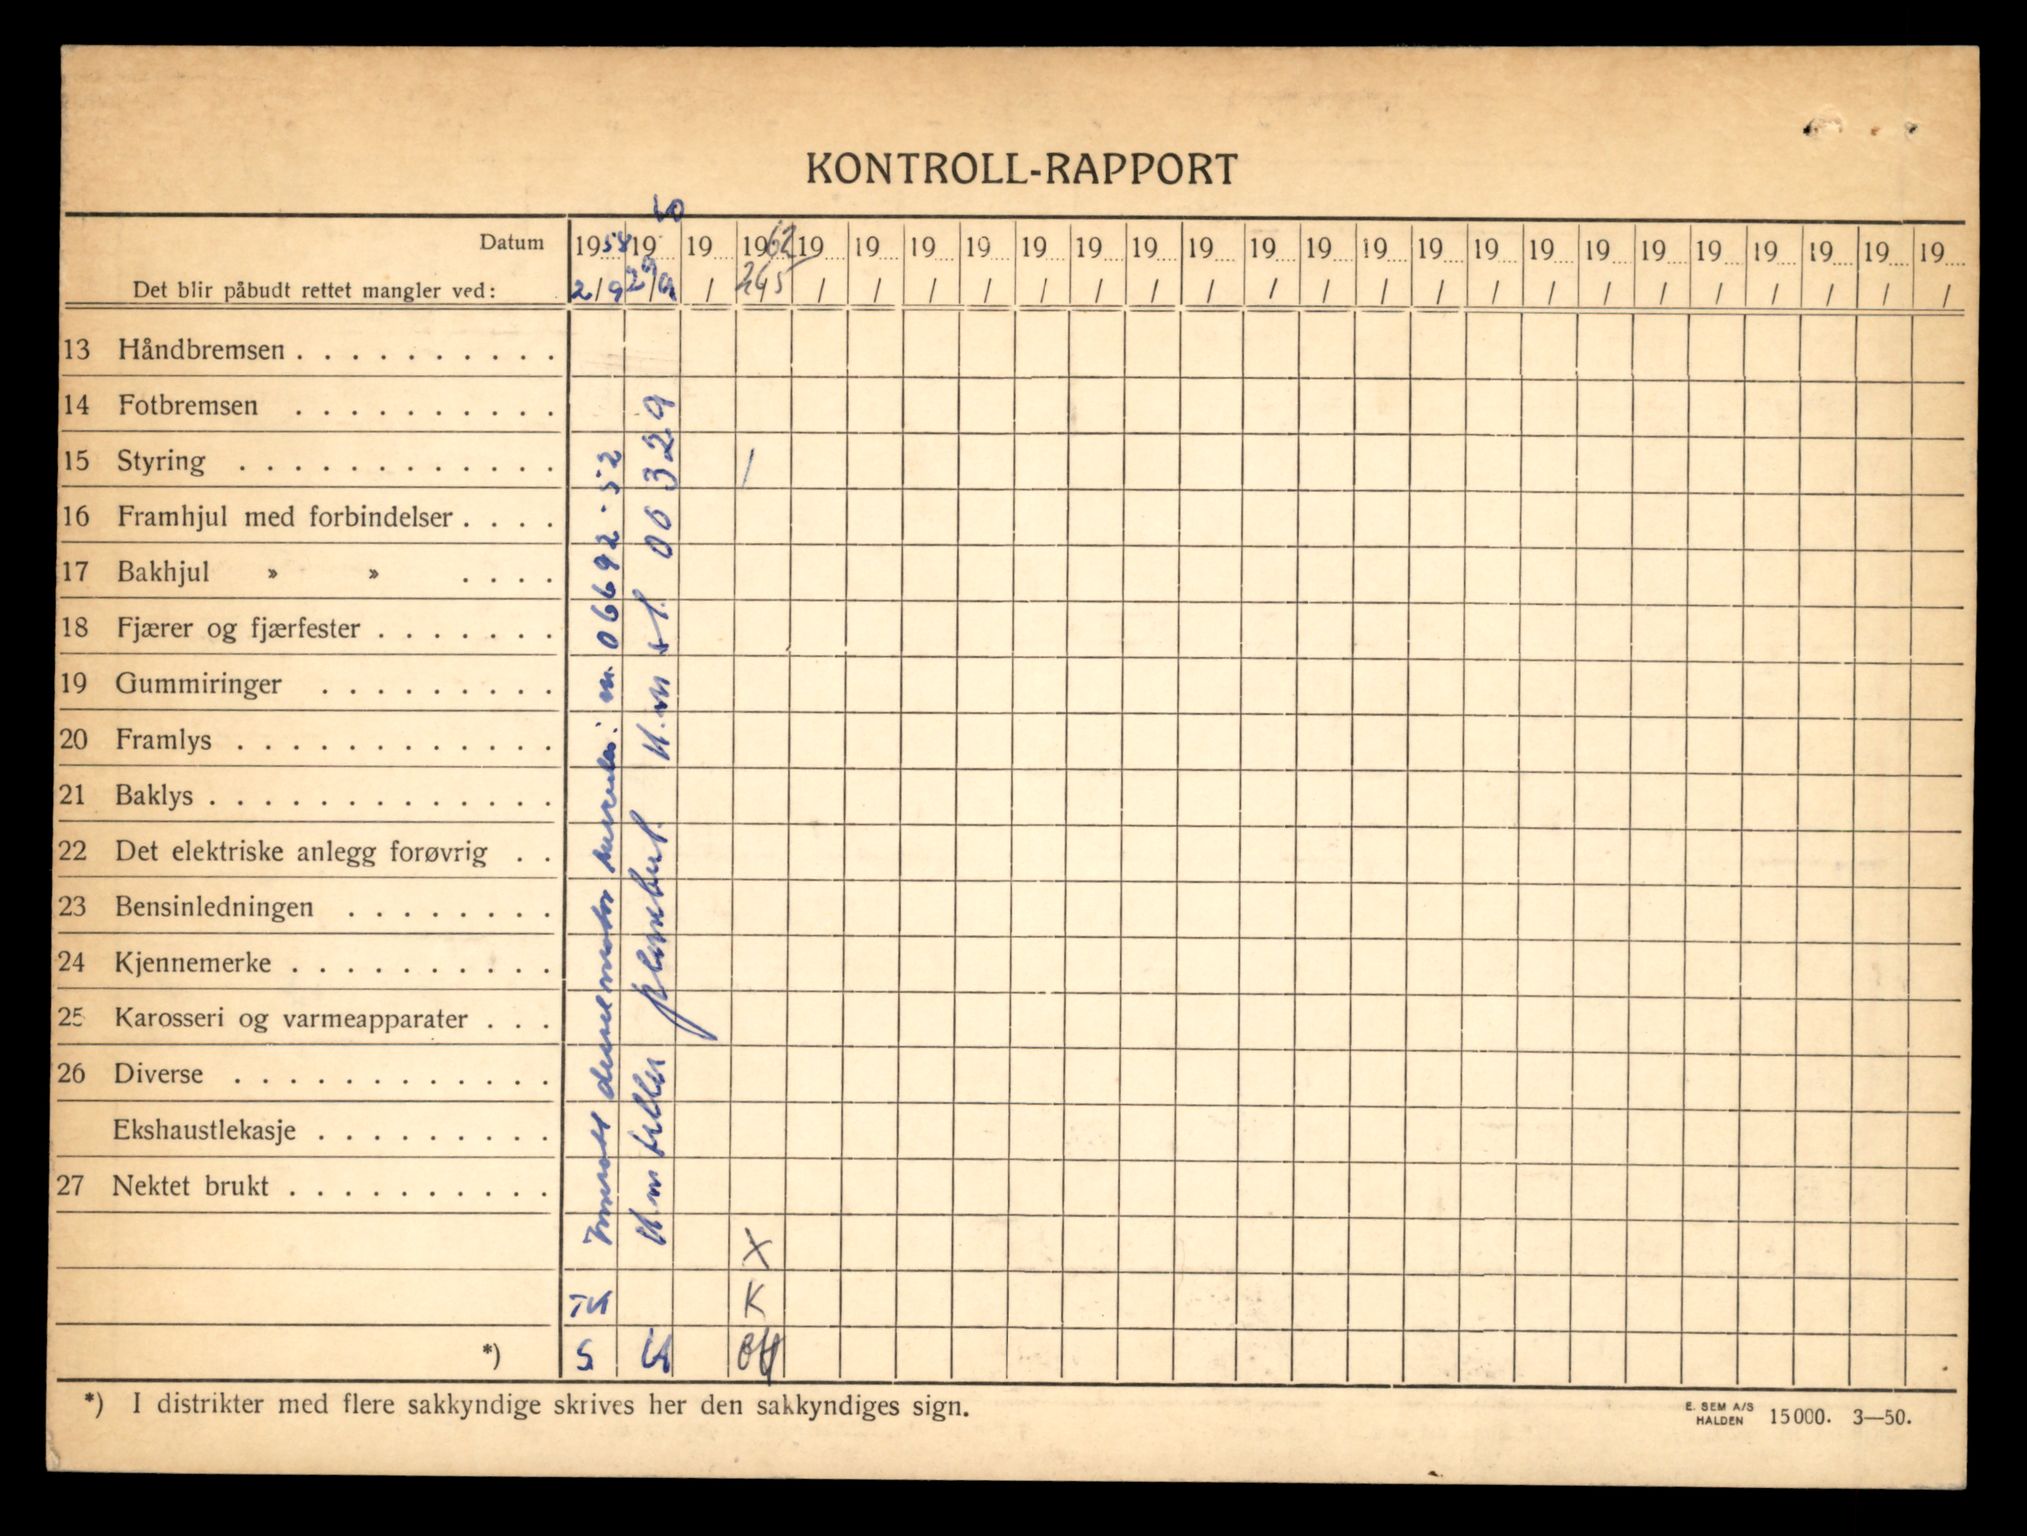 KONTROLL-RAPPORT
Datum 1958 19 50 19 1962 19 19 19 19 19 19 19 19 19 19 19 19 19 19 19 19 19 19 19 19 19
Det blir påbudt rettet mangler ved: 2/9 29/9 / 24/5 / / / / / / / / / / / / / / / / / / / / /
13 Håndbremsen
14 Fotbremsen
15 Styring /
16 Framhjul med forbindelser
17 Bakhjul » »
18 Fjærer og fjærfester
19 Gummiringer
20 Framlys
21 Baklys
22 Det elektriske anlegg forøvrig
23 Bensinledningen
24 Kjennemerke
25 Karosseri og varmeapparater
26 Diverse
Ekshaustlekasje
27 Nektet brukt
m. 06692-52
plombert. 00329
X
K
*) S
*) I distrikter med flere sakkyndige skrives her den sakkyndiges sign.
E. SEM A/S
HALDEN 15000. 3—50.